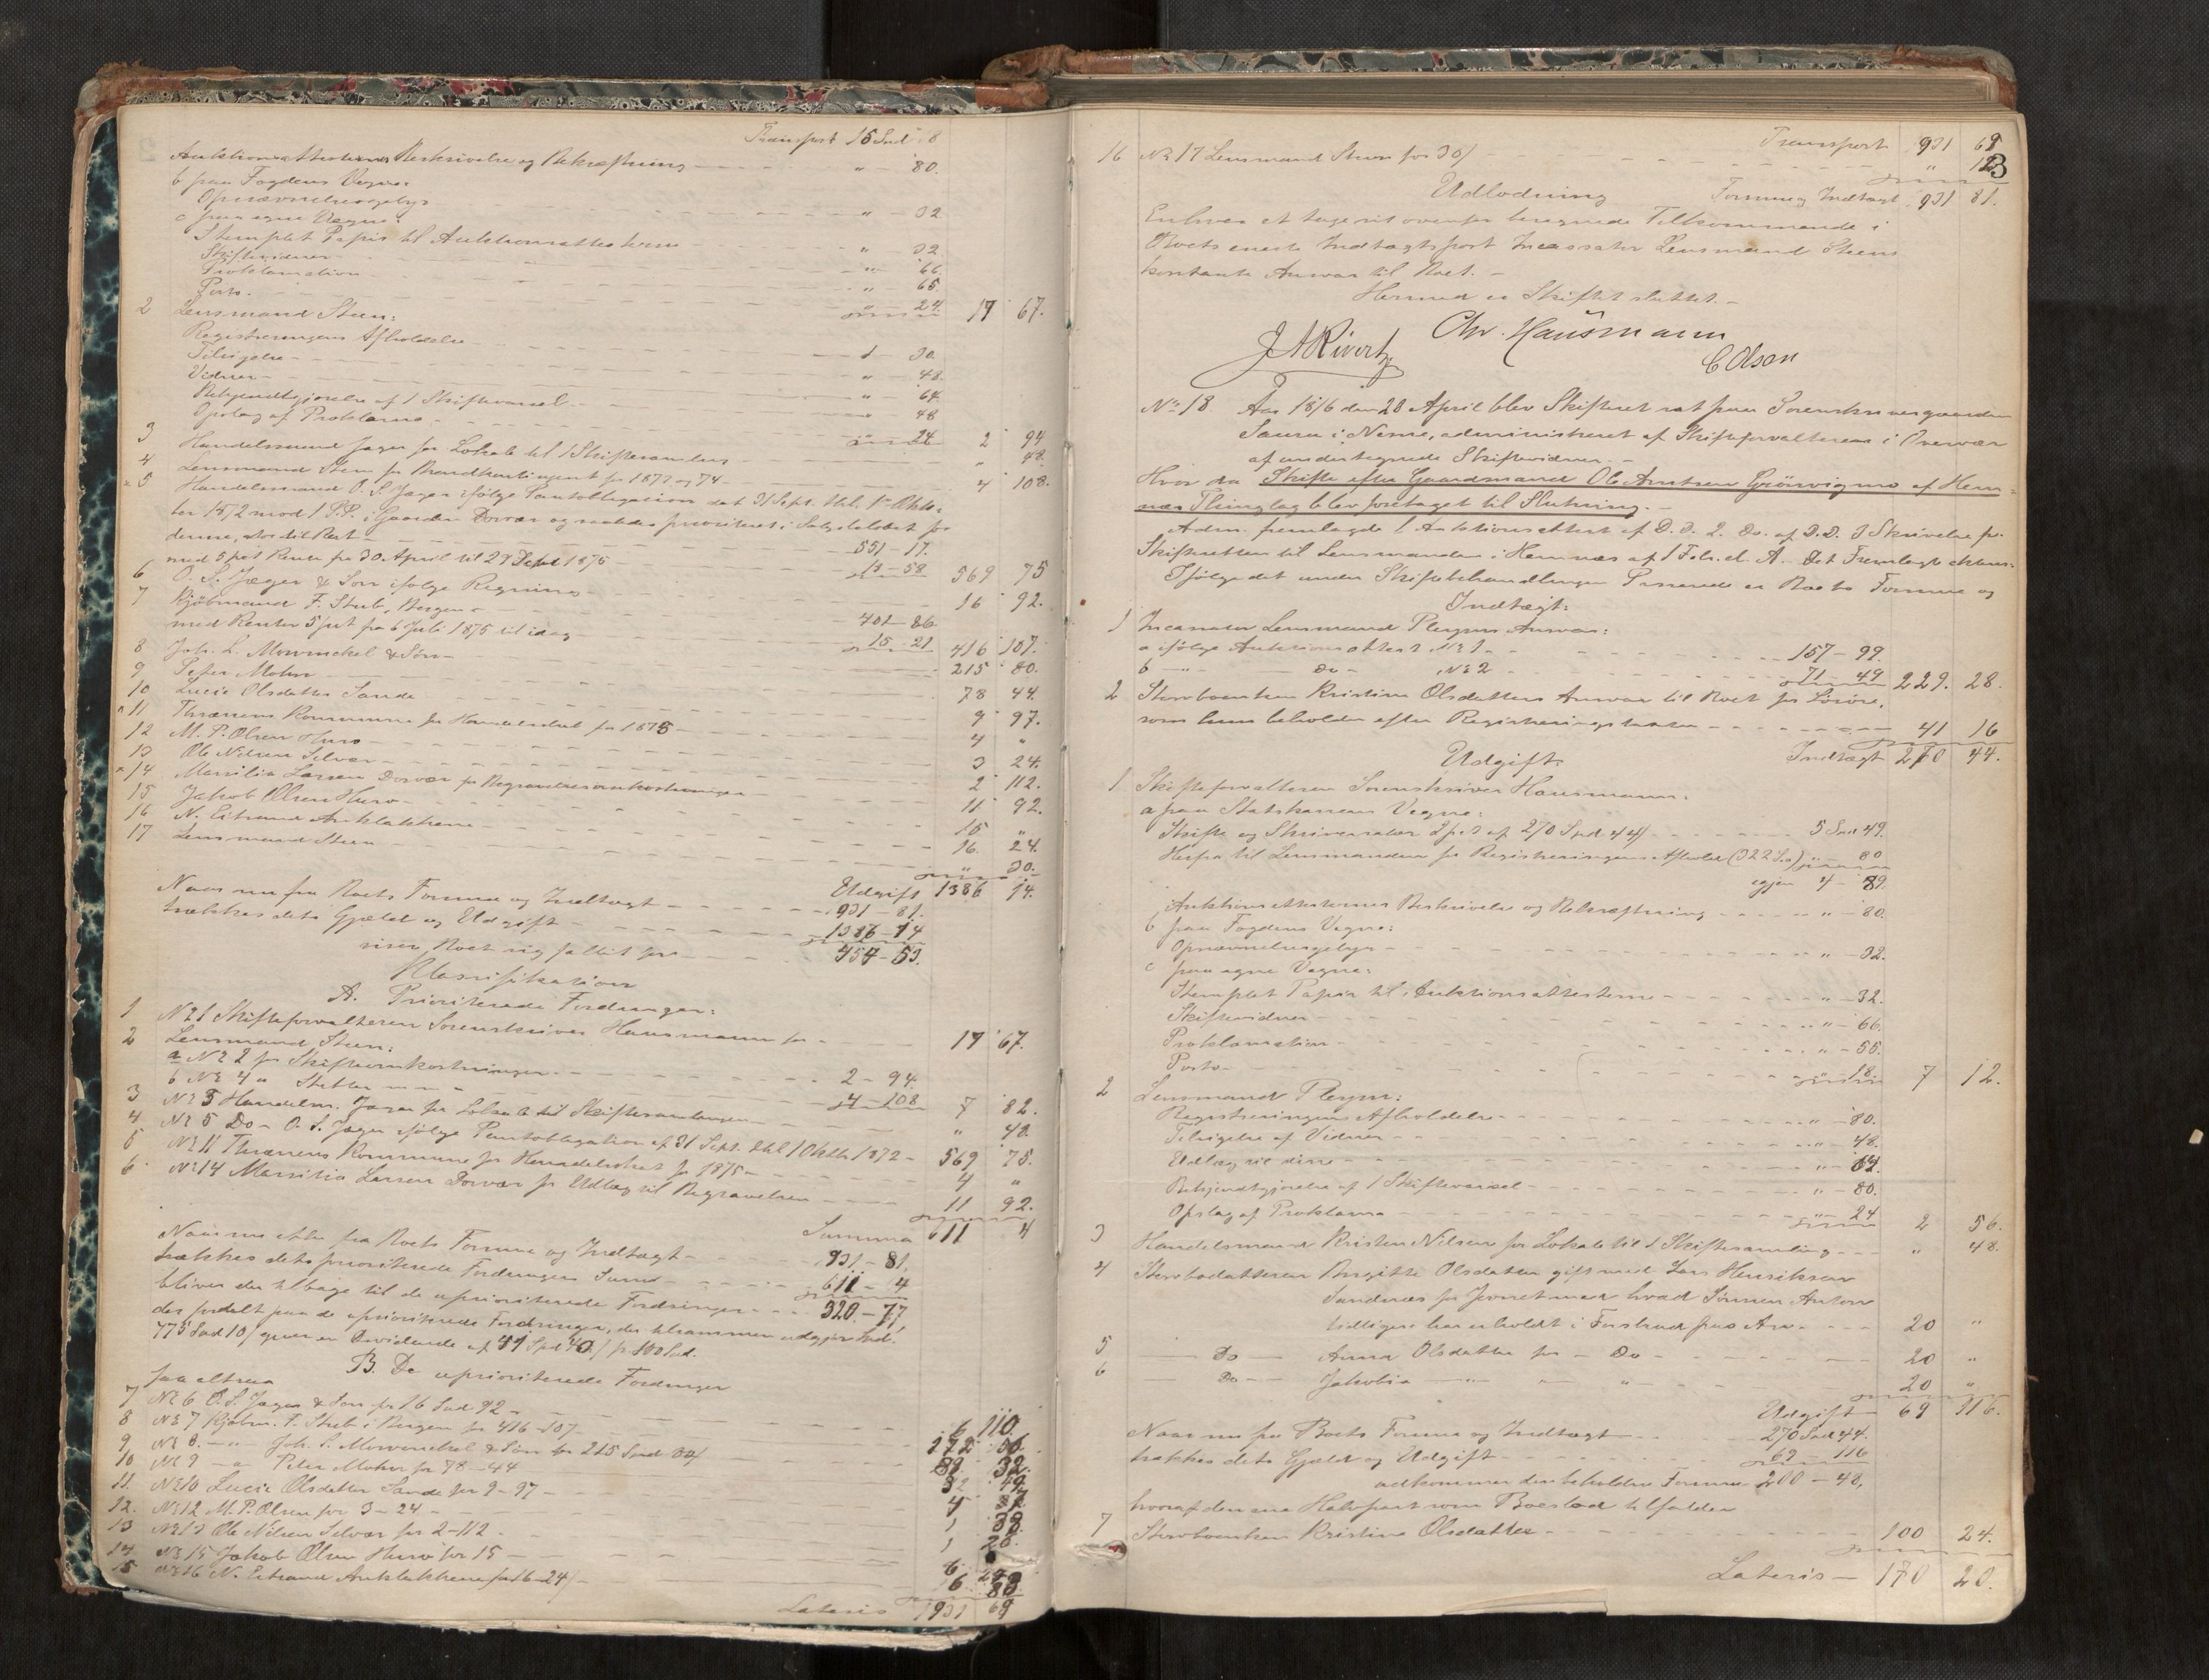 Transport 15 Spd 18
Auktionsattesternes Beskrivelse og Bekræftning — " — 80.
b paa Fogdens Vegne:
Opnævnelsesgebyr — " — 32
c paa egne Vegne:
Stemplet Papir til Auktionsattesterne — " — 32.
Skiftevidner — " — 66.
Proklamation — " — 65.
Porto. — " 24. 17 67.
2 Lensmand Steen:
Registreringens Afholdelse — 1 — 30.
Tilsigelse — " — 48.
Vidner — " — 64.
Bekjendtgjørelse af 1 Skiftevarsel — " — 48
Opslag af Proklama — " 24 2 94
3 Handelsmand Jæger for Lokale til 1 Skiftesamling — " 48.
4 Lensmand Steen for Brandkontingent for 1873 og 74 — 4 108.
5 Handelsmand O. S. Jæger ifølge Pantobligation dat 31 Sept. thl. 1ste Okto-
ber 1872 med 1 P.P. i Gaarden Dorvær og saaledes prioriteret i Salgsbeløbet for
denne, stor til Rest — 551 — 17.
med 5 pct Renter fra 30. April til 29 Septbr 1875 — 18 — 58 569 75
6 O. S. Jæger & Søn ifølge Regning — 16 92.
7 Kjøbmand F. Stub, Bergen —
med Renter 5 pct fra 6 Juli 1875 til idag — 401 — 86 15 — 21 416 107.
8 Joh. L. Mowinckel & Søn — 215 80.
9 Peter Mohn — 78 44.
10 Lucie Olsdatter Sande — 9 97.
11 Thrænens Kommune for Handelsskat for 1875 — 4 "
12 M. P. Olsen Husø — 3 24.
13 Ole Nilsen Selvær — 2 112.
14 Massilia Larsen Dorvær for Begravelsesomkostninger — 11 92.
15 Jakob Olsen Husø — 15 "
16 N. Eitrand Anklakkene — 16. 24.
17 Lensmand Steen — " 30.
Udgift 1386 14.
Naar nu fra Boets Formue og Indtægt — 931 — 81.
trækkes dets Gjæld og Udgift — 1386 — 14
viser Boet sig fallit for — 454 — 53.
Klassifikation
A. Prioriterede Fordringer:
1 No 1 Skifteforvalteren Sorenskriver Hausmann for — 17 67.
2 Lensmand Steen:
a No 2 for Skifteomkostninger — 2 — 94.
b No 4 " Skatter — 4 — 108 7 82.
3 No 3 Handelsm. Jæger for Lokale til Skiftesamlingen — " 48.
4 No 5 Do — O. S. Jæger ifølge Pantobligation af 31 Sept. thl 1 Oktbr 1872 — 569 75.
5 No 11 Thrænens Kommune for Handelsskat for 1875 — 4 "
6 No 14 Massilia Larsen Dorvær for Udlæg til Begravelsen — 11 92.
Summa 611 4
Naar nu atter fra Boets Formue og Indtægt — 931 — 81.
trækkes dets prioriterede Fordringers Sum — 611 — 4
bliver der tilbage til de uprioriterede Fordringer — 320 — 77
der fordelt paa de uprioriterede Fordringer, der tilsammen udgjør Spd.
775 Spd 10/ giver en Dividende af 41 Spd 40/ for 100 Spd.
B. De uprioriterede Fordringer
faa altsaa
7 No 6 O. S. Jæger & Søn for 16 Spd 92 — 6 110.
8 No 7 Kjøbm. F. Stub i Bergen for 416 — 107 — 172 56
9 No 8 — " Joh. L. Mowinckel & Søn for 215 Spd 80/ 89 32.
10 No 9 — " Peter Mohn for 78 — 44 — 32
11. No 10 Lucie Olsdatter Sande for 9 — 97 — 4
12. No 12 M. P. Olsen for 3 — 24 — 1
13 No 13 Ole Nilsen Selvær for 2 — 112 — 1
14 No 15 Jakob Olsen Husø for 15 — 6
15 No 16 N. Eitrand Anklakkene for 16 — 24/ — 6
Lateris 931 69
Transport 931 69
16 No 17 Lensmand Steen for 30/ — " 12
Udlodning Formue og Indtægt 931 81.
Enhver at tage sit ovenfor beregnede Tilkommende i
Boets eneste Indtægtspost Incassator Lensmand Steens
kontante Ansvar til Boet. —
Hermed er Skiftet sluttet. —
J A Rivertz Chr. Hausmann
C Olsen
No 18. Aar 1876 den 20 April blev Skifteret sat paa Sorenskrivergaarden
Saura i Nesne, administreret af Skifteforvalteren i Overvær
af undertegnede Skiftevidner. —
Hvor da Skifte efter Gaardmand Ole Arntsen Grønvigmo af Hem-
næs Thinglag blev foretaget til Slutning. —
Adm. fremlagde 1 Auktionsattest af D. D. 2. Do. af D. D. 3 Skrivelse fra
Skifteretten til Lensmanden i Hemnæs af 1 Febr. d. A. Det Fremlagte
Ifølge det under Skiftebehandlingen Passerede er Boets Formue og
Indtægt:
1 Incassator Lensmand Pleyms Ansvar:
a ifølge Auktionsattest No 1 — 157 — 99.
b — " — Do — No 2 — 71 — 49 229. 28.
2 Stervboenken Kristine Olsdatters Ansvar til Boet for Løsøre,
som hun beholder efter Registreringstaxten — 41 16
Indtægt 270 44.
Udgift.
1 Skifteforvalteren Sorenskriver Hausmann:
a paa Statskassens Vegne:
Skifte og Skriversalær 2 pct af 270 Spd 44/ — 5 Spd 49.
Herfra til Lensmanden for Registreringens Afholdelse " — 80
igjen 4 — 89.
Auktionsattesternes Beskrivelse og Bekræftning — " — 80.
b paa Fogdens Vegne:
Opnævnelsesgebyr — " — 32.
c paa egne Vegne:
Stemplet Papir til Auktionsattesterne — " — 32.
Skiftevidner — " — 66.
Proklamation — " — 55.
Porto — " 18. 7 12.
2 Lensmand Pleym:
Registreringens Afholdelse — " — 80.
Tilsigelse af Vidner — " — 48.
Udlæg til disse — " — 64.
Bekjendtgjørelse af 1 Skiftevarsel — " — 80.
Opslag af Proklama — " 24 2 56.
3 Handelsmand Kristen Nilsen for Lokale til 1 Skiftesamling — " 48.
4 Stervbodatteren Birgitte Olsdatter gift med Lars Henriksen
Sandnæs for Jevnet med hvad Sønnen Anton
tidligere har erholdt i Forskud paa Arv — 20 "
5 — Do — Anna Olsdatter for — Do — 20 "
6 — Do — Jakobia — " — " — 20 "
Udgift 69 116.
Naar nu fra Boets Formue og Indtægt — 270 Spd 44.
trækkes dets Gjæld og Udgift — 69 — 116
udkommer den beholdne Formue 200 — 48.
hvoraf den ene Halvpart som Boeslod tilfalder
7 Stervboenken Kristine Olsdatter — 100 24.
Lateris — 170 20.